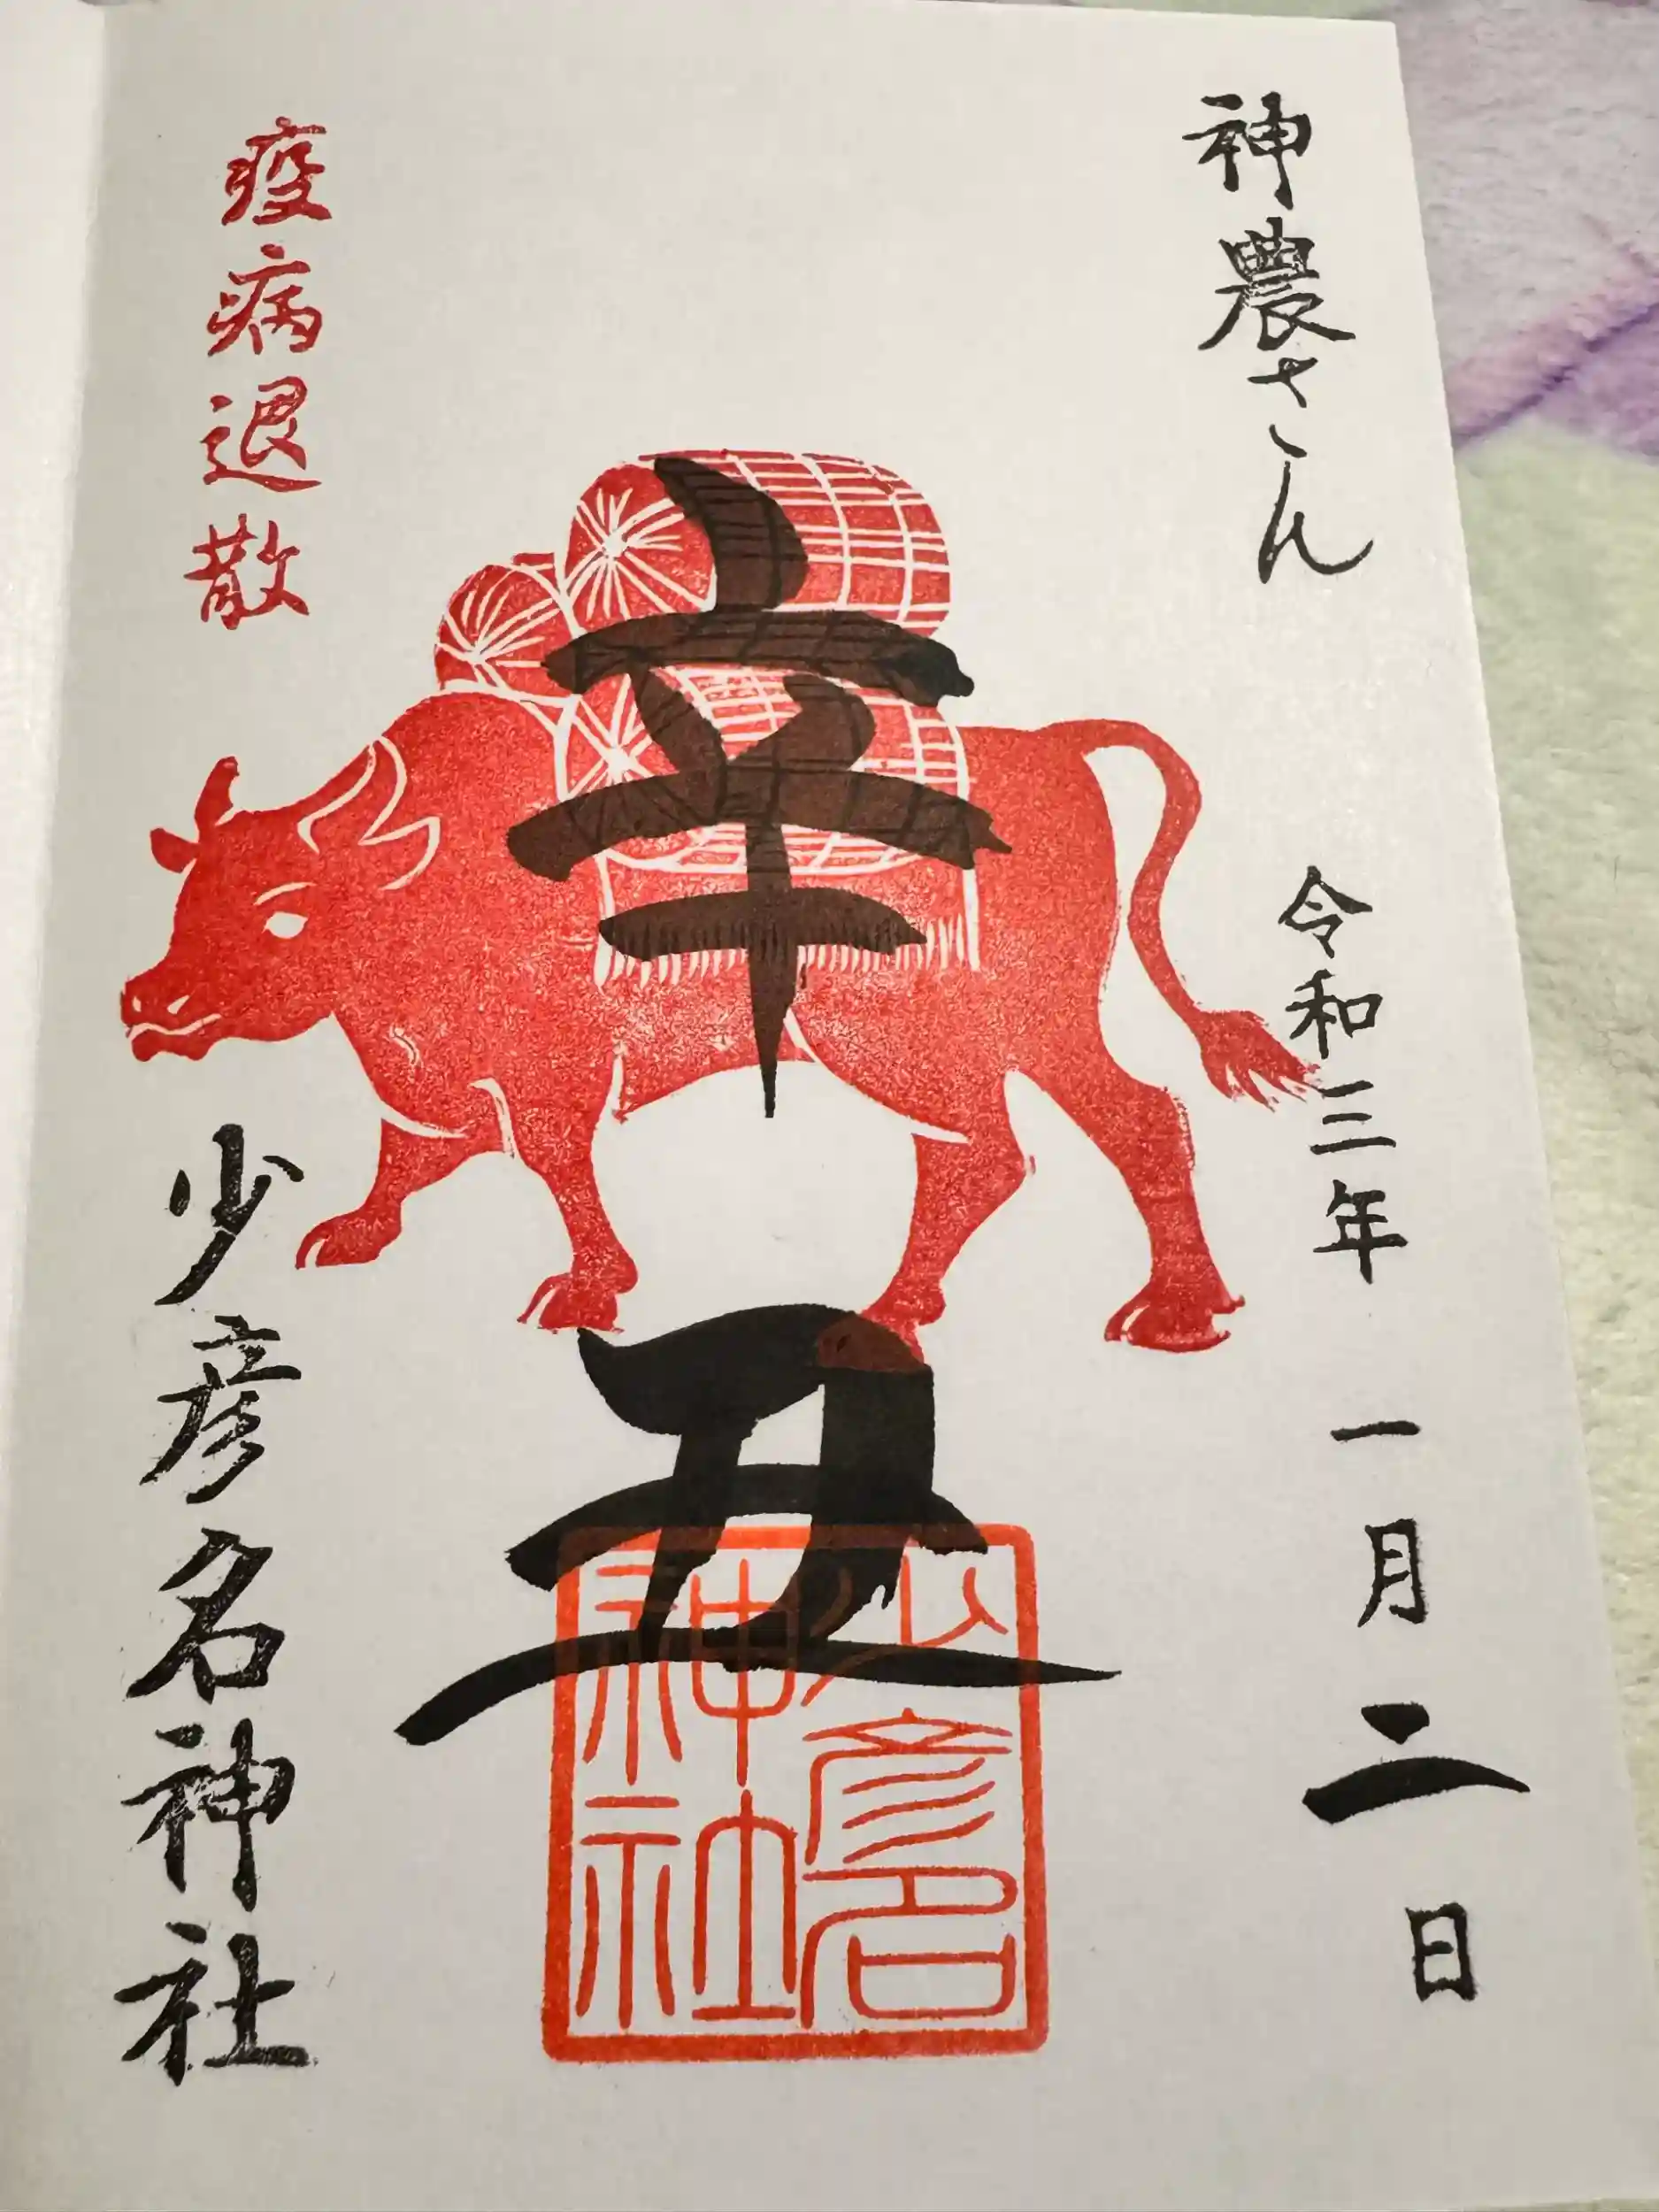 神農さん
令和三年 一月二日
辛丑
少彦名神社
疫病退散
少彦名神社